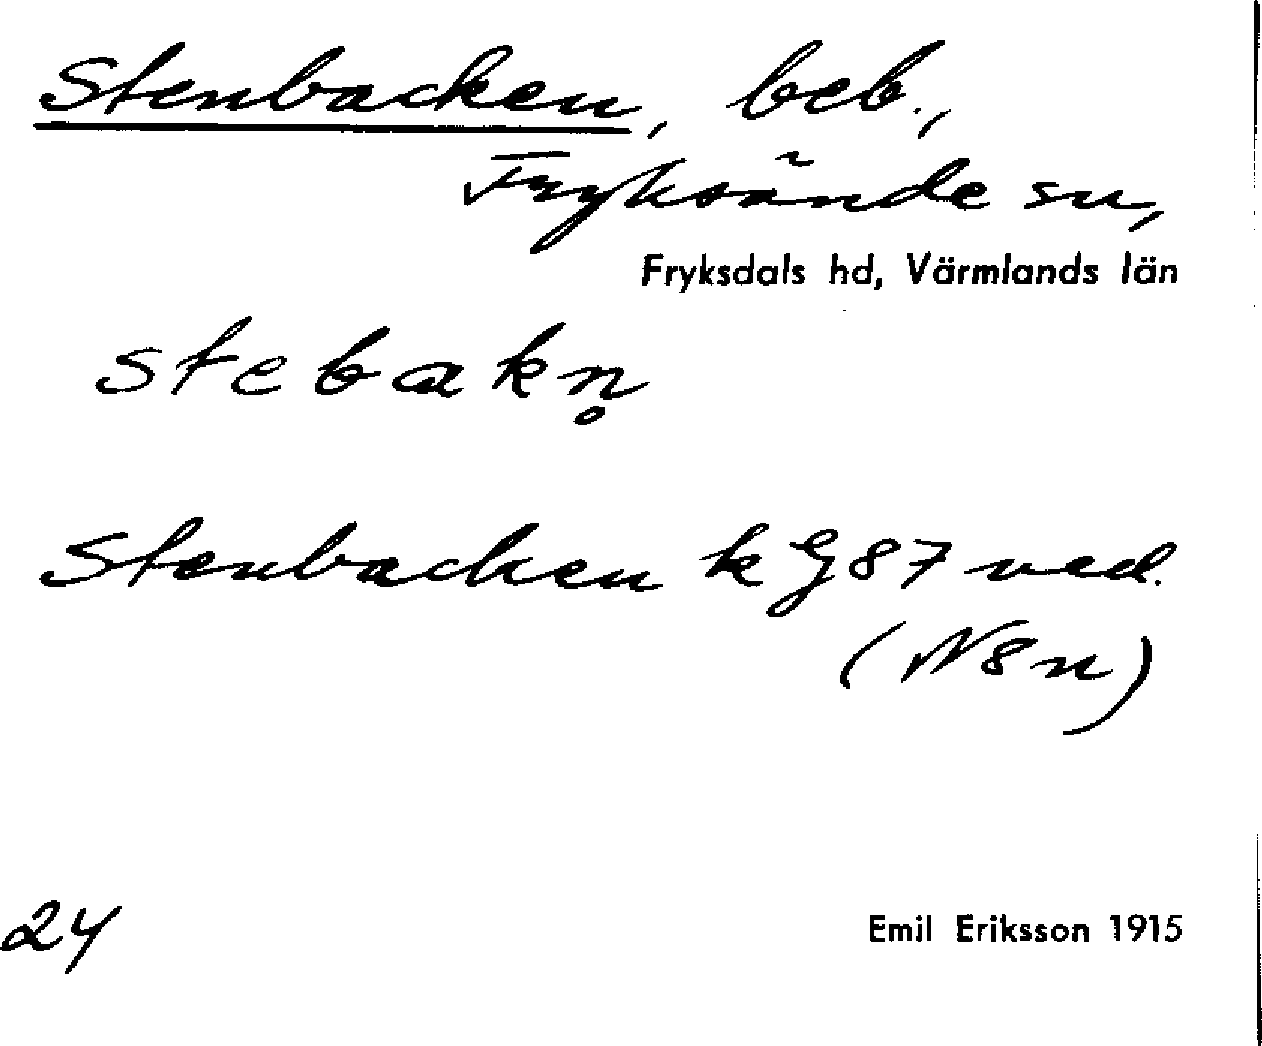 Stenbacken, beb.,
Fryksände sn,
Fryksdals hd, Värmlands län
stebakn̥
Stenbacken k G 87 ned.
(N8n)
24
Emil Eriksson 1915